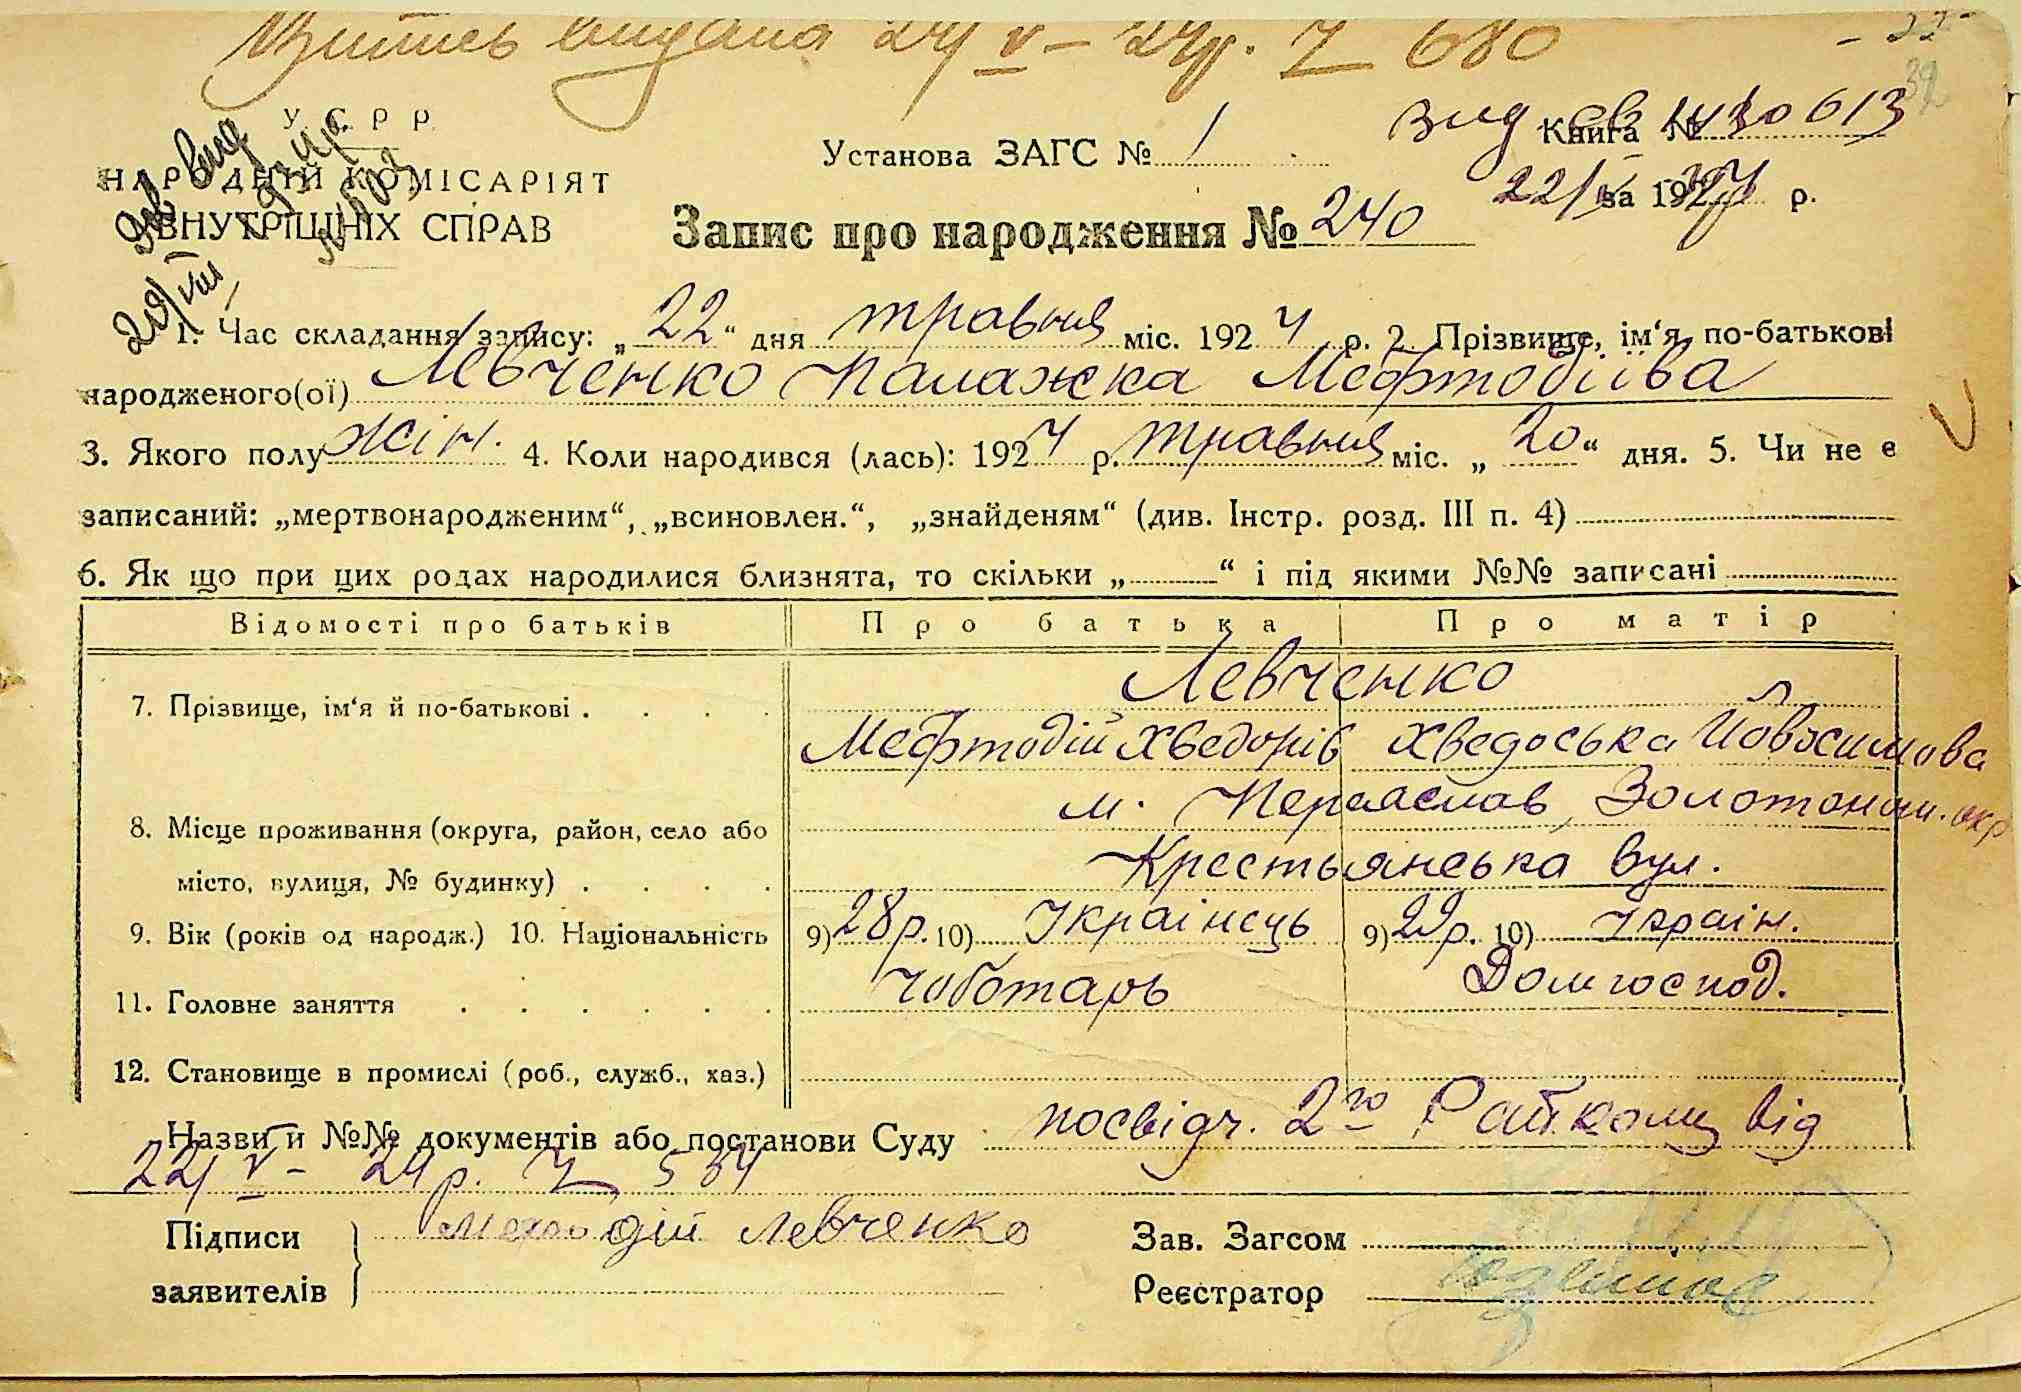 Витпсь видана 24/V – 24р. № 680
У С Р Р
НАРОДНІЙ КОМІСАРІЯТ
ВНУТРІШНІХ СПРАВ
Установа ЗАГС № 1
Книга №
за 192 р.
22/V
Запис про народження № 240
1. Час складання запису: „22“ дня травня міс. 1924 р. 2. Прізвище, ім‘я по-батькові
народженого(ої) Левченко Палажка Мефтодіїва
3. Якого полу жін. 4. Коли народився (лась): 1924 р. травня міс. „20“ дня. 5. Чи не є
записаний: „мертвонародженим“, „всиновлен.“, „знайденям“ (див. Інстр. розд. III п. 4)
6. Як що при цих родах народилися близнята, то скільки „ “ і під якими №№ записані
Відомості про батьків Про батька Про матір
Левченко
7. Прізвище, ім‘я й по-батькові . . . .
Мефтодій Хведорів Хведоська Йовхимова
м. Переяслав, Золотонош. окр
8. Місце проживання (округа, район, село або
Крестьянська вул.
місто, вулиця, № будинку) . . . .
9. Вік (років од народж.) 10. Національність 9) 28 р. 10) Українець 9) 22 р. 10) Україн.
11. Головне заняття . . . . . . Чоботарь Домгоспод.
12. Становище в промислі (роб., служб., хаз.)
Назви й №№ документів або постанови Суду посвідч. 2го Райкому від
22/V – 24 р. № 534
Підписи Мефодій Левченко Зав. Загсом
заявителів Реєстратор